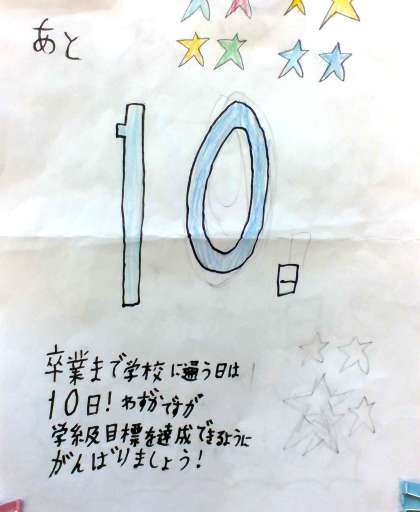 あと
10日
卒業まで学校に通う日は
10日！わずかですが
学級目標を達成できるように
がんばりましょう！